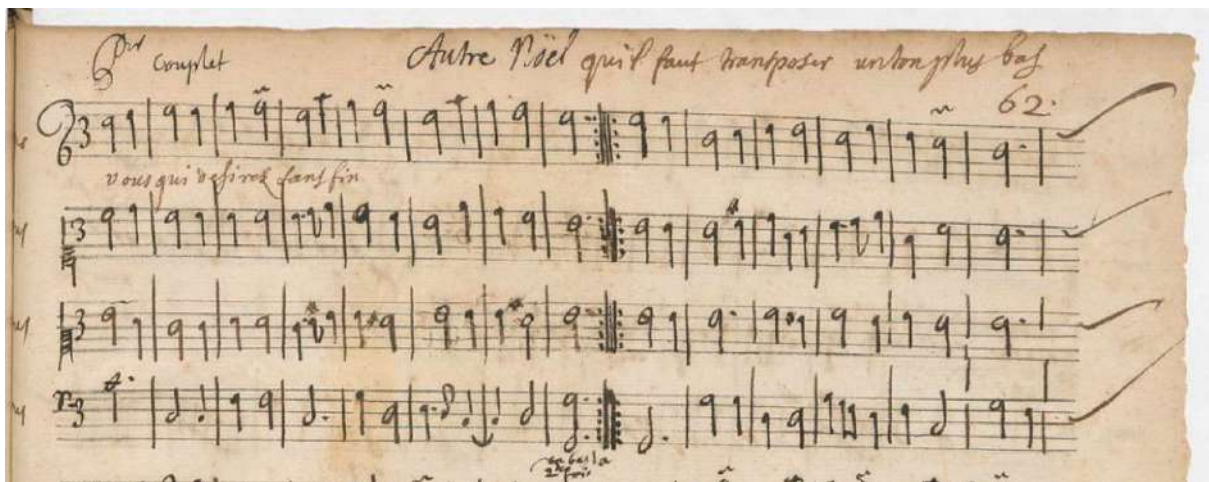 1er Couplet Autre Nöel qu'il faut transposer un ton plus bas
62.
3
vous qui desirez sans fin
3
3
3
2de fois